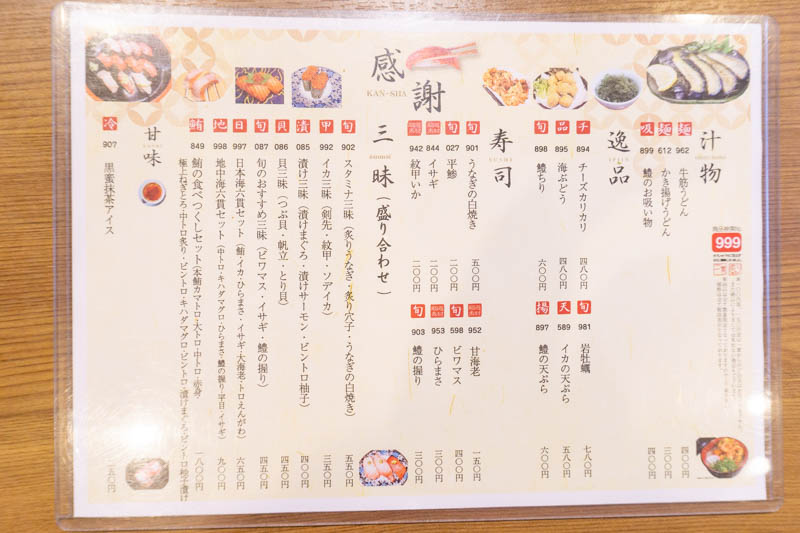 感謝
KAN-SHA
汁物
麺
962
牛筋うどん
四八〇円
麺
612
かき揚げうどん
三〇〇円
吸
899
鱧のお吸い物
四〇〇円
999
逸品
チ
894
チーズカリカリ
四八〇円
品
895
海ぶどう
四八〇円
旬
898
鱧ちり
六〇〇円
旬
981
岩牡蠣
七八〇円
天
589
イカの天ぷら
五八〇円
揚
897
鱧の天ぷら
六〇〇円
寿司
SUSHI
旬
901
うなぎの白焼き
五〇〇円
旬
027
平鯵
二〇〇円
844
イサギ
二〇〇円
942
紋甲いか
二〇〇円
952
甘海老
一五〇円
旬
598
ビワマス
四〇〇円
953
ひらまさ
三〇〇円
旬
903
鱧の握り
三〇〇円
三昧（盛り合わせ）
旬
902
スタミナ三昧（炙りうなぎ・炙り穴子・うなぎの白焼き）
五五〇円
甲
992
イカ三昧（剣先・紋甲・ソデイカ）
三五〇円
漬
085
漬け三昧（漬けまぐろ・漬けサーモン・ビントロ柚子）
四〇〇円
貝
086
貝三昧（つぶ貝・帆立・とり貝）
四五〇円
旬
087
旬のおすすめ三昧（ビワマス・イサギ・鱧の握り）
四五〇円
日
997
日本海六貫セット（鮪・イカ・ひらまさ・イサギ・大海老・トロえんがわ）
六五〇円
地
998
地中海六貫セット（中トロ・キハダマグロ・ひらまさ・鱧の握り・平目・イサギ）
九〇〇円
鮪
849
鮪の食べつくしセット（本鮪カマトロ・大トロ・中トロ・赤身・
極上ねぎとろ・中トロ炙り・ビントロ・キハダマグロ・ビントロ漬け・漬けまぐろ・ビントロ柚子漬け
一八〇〇円
甘味
冷
907
黒蜜抹茶アイス
二五〇円